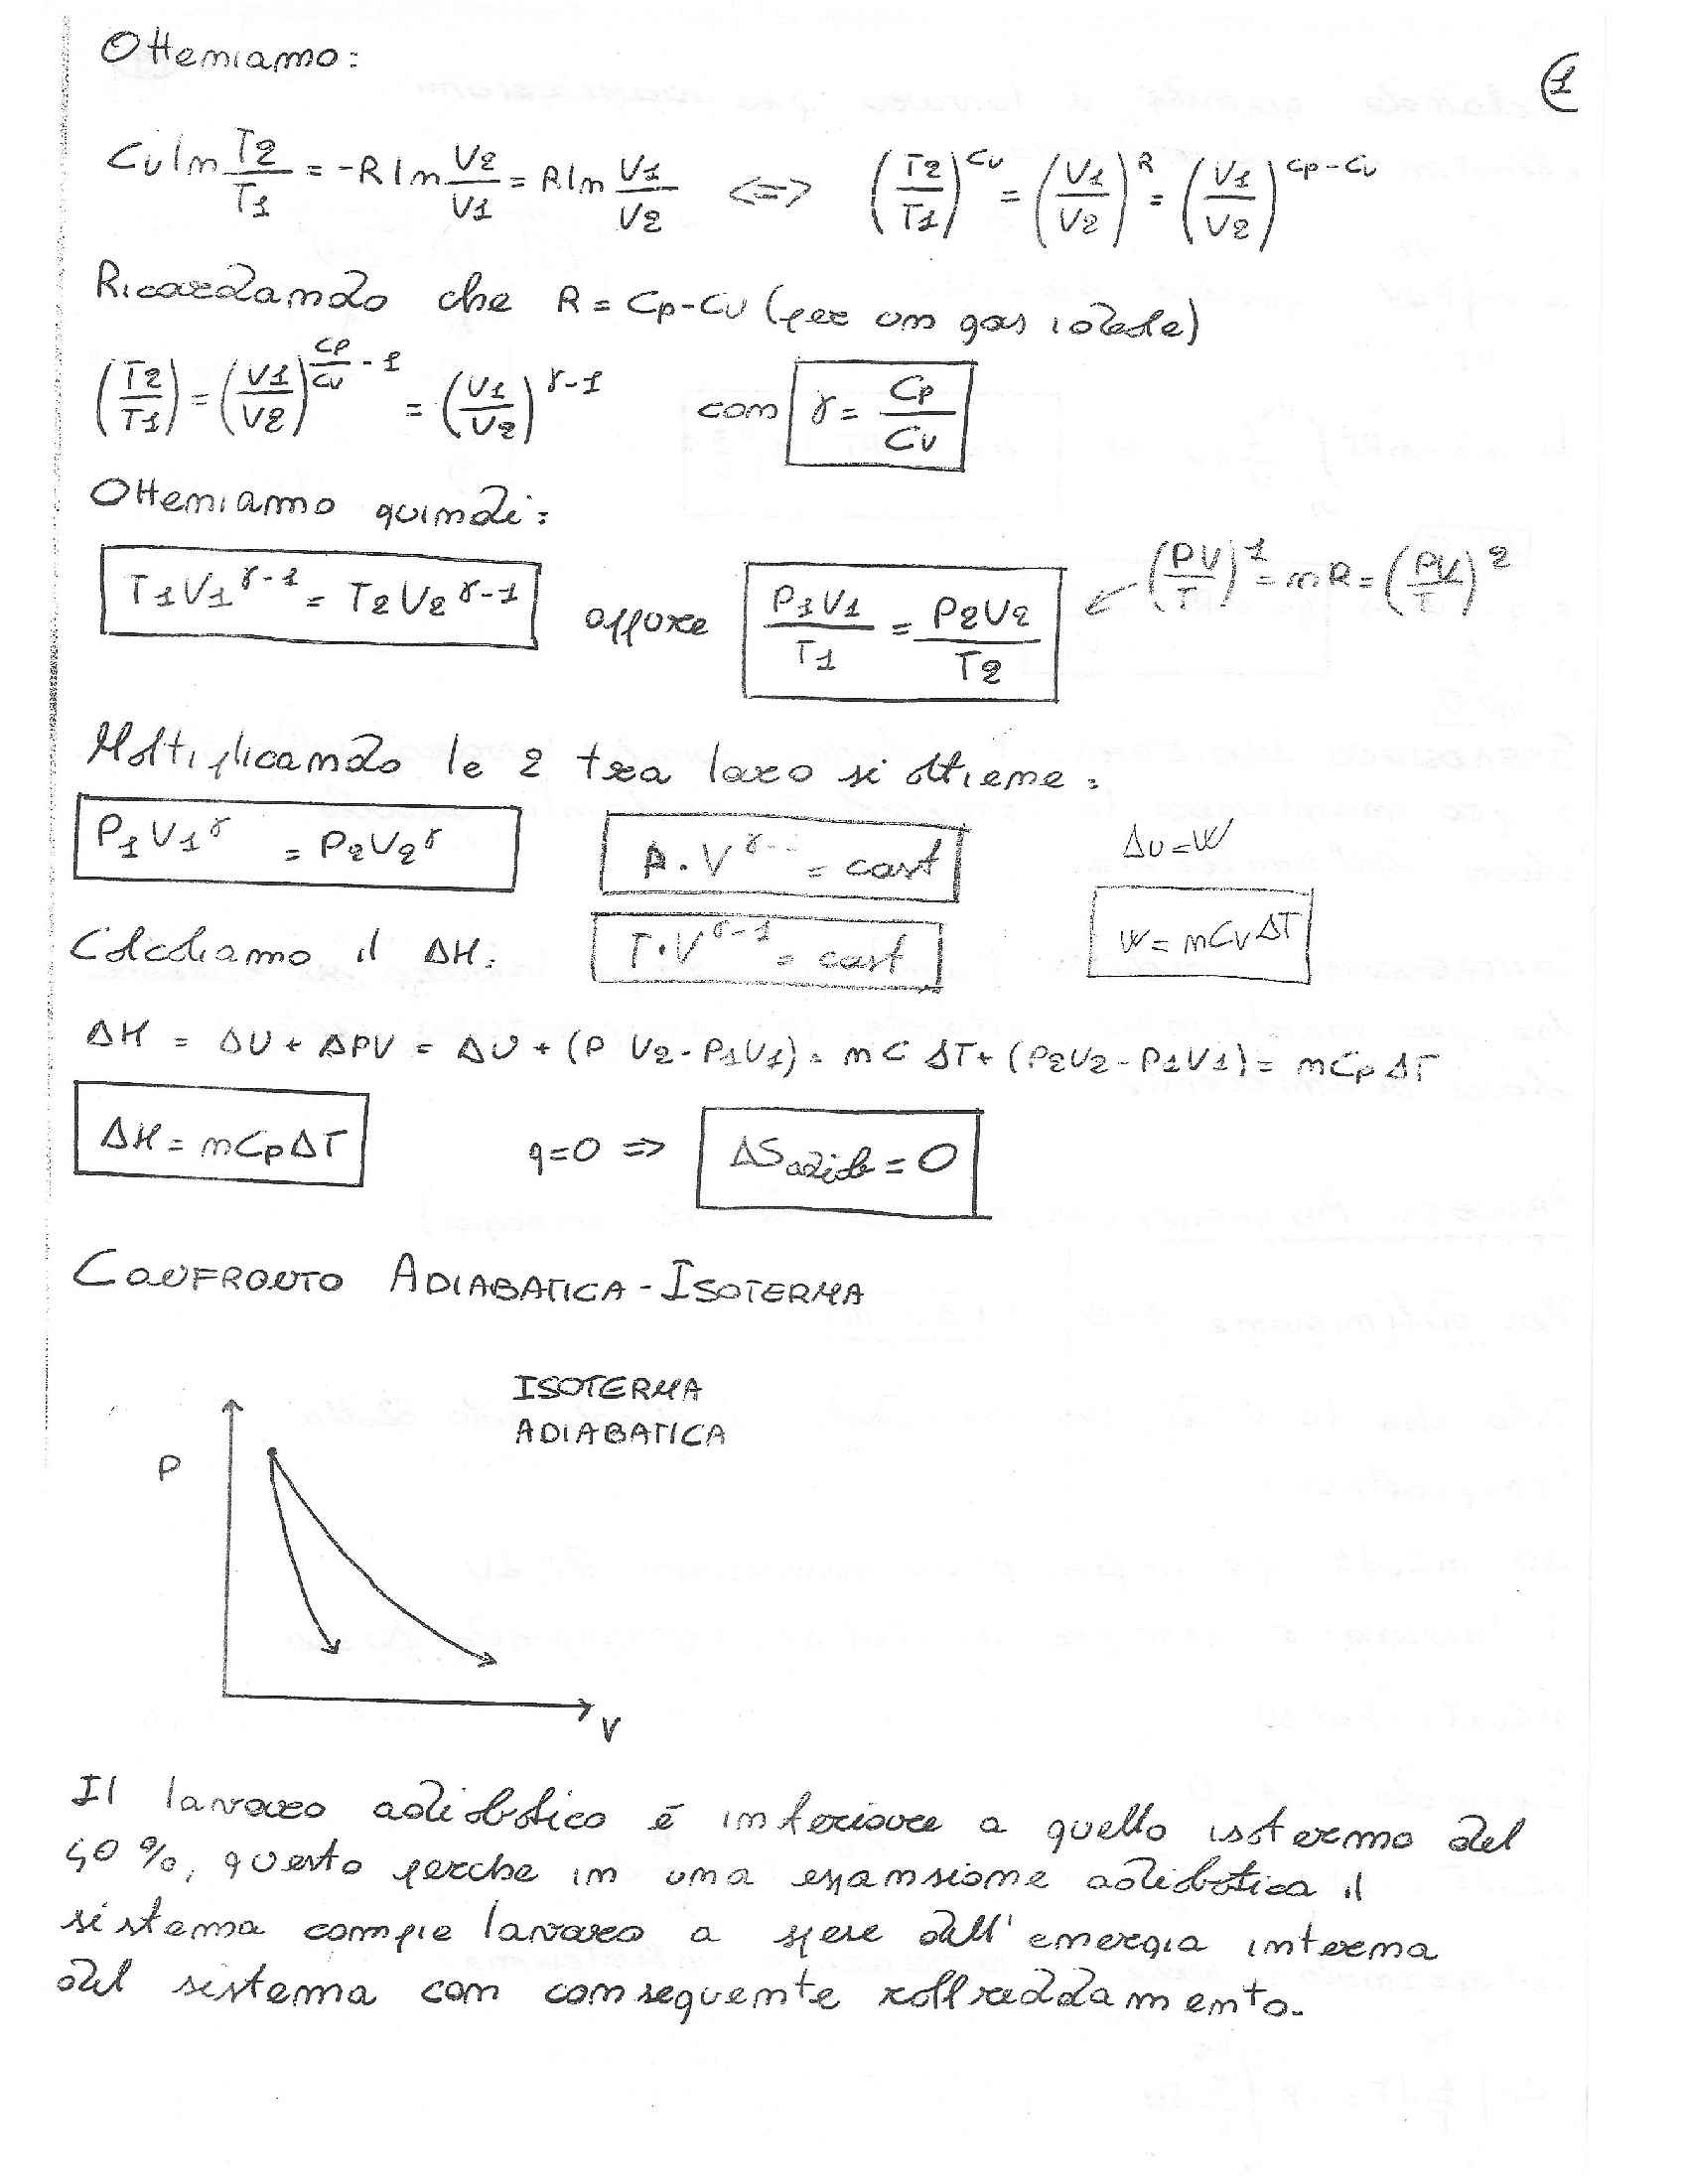 Otteniamo:
1
Cv ln T2/T1 = -R ln V2/V1 = R ln V1/V2 <=> (T2/T1)^Cv = (V1/V2)^R = (V1/V2)^Cp-Cv
Ricordando che R = Cp-Cv (per un gas ideale)
(T2/T1) = (V1/V2)^Cp/Cv - 1 = (V1/V2)^γ-1 con γ = Cp/Cv
Otteniamo quindi:
T1V1^γ-1 = T2V2^γ-1 oppure P1V1/T1 = P2V2/T2 ← (PV/T)^1 = nR = (PV/T)^2
Moltiplicando le 2 tra loro si ottiene:
P1V1^γ = P2V2^γ P·V^γ = cost ΔU=W
Calcoliamo il ΔH: T·V^γ-1 = cost W = nCvΔT
ΔH = ΔU + ΔPV = ΔU + (P V2-P1V1) = nC ΔT + (P2V2-P1V1) = nCpΔT
ΔH = nCpΔT q=0 => ΔSadiab = 0
CONFRONTO ADIABATICA-ISOTERMA
ISOTERMA
ADIABATICA
P
V
Il lavoro adiabatico è inferiore a quello isotermo del
40%, questo perche in una espansione adiabatica il
sistema compie lavoro a spese dell'energia interna
del sistema con conseguente raffreddamento.